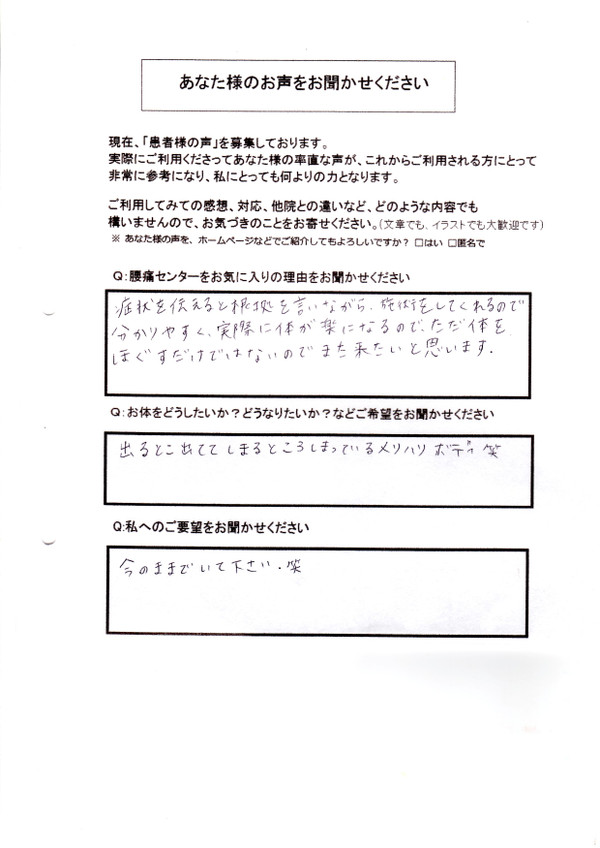 あなた様のお声をお聞かせください
現在、「患者様の声」を募集しております。
実際にご利用くださってあなた様の率直な声が、これからご利用される方にとって
非常に参考になり、私にとっても何よりの力となります。
ご利用してみての感想、対応、他院との違いなど、どのような内容でも
構いませんので、お気づきのことをお寄せください。(文章でも、イラストでも大歓迎です)
※ あなた様の声を、ホームページなどでご紹介してもよろしいですか? □はい □匿名で
Q:腰痛センターをお気に入りの理由をお聞かせください
症状を伝えると根拠を言いながら、施術をしてくれるので
分かりやすく、実際に体が楽になるので、ただ体を
ほぐすだけではないのでまた来たいと思います.
Q:お体をどうしたいか?どうなりたいか?などご希望をお聞かせください
出るとこ出ててしまるところしまっているメリハリボディ笑
Q:私へのご要望をお聞かせください
今のままでいて下さい.笑